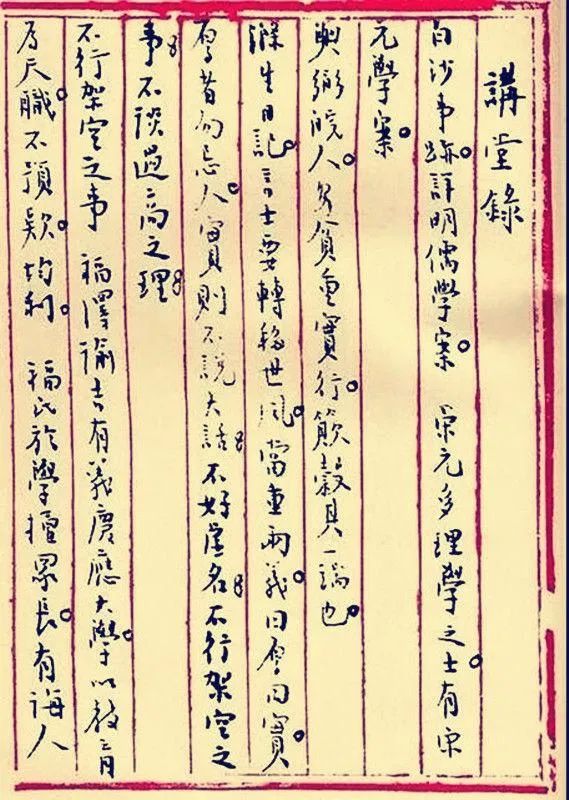 講堂錄
白沙事跡。詳明儒學案。 宋元多理學之士。有宋
元學案。
與弼皖人。貧重實行。穀其一端也。
滌生日記。言士要轉移世風。當重兩義。曰厚曰實。
厚者勿忌人。實則不說大話。不好虛名。不行架空之
事。不談過高之理。
不行架空之事 福澤諭吉有義慶應大學。以教育
為天職。不預款。均利。 福氏於學擅眾長。有誨人